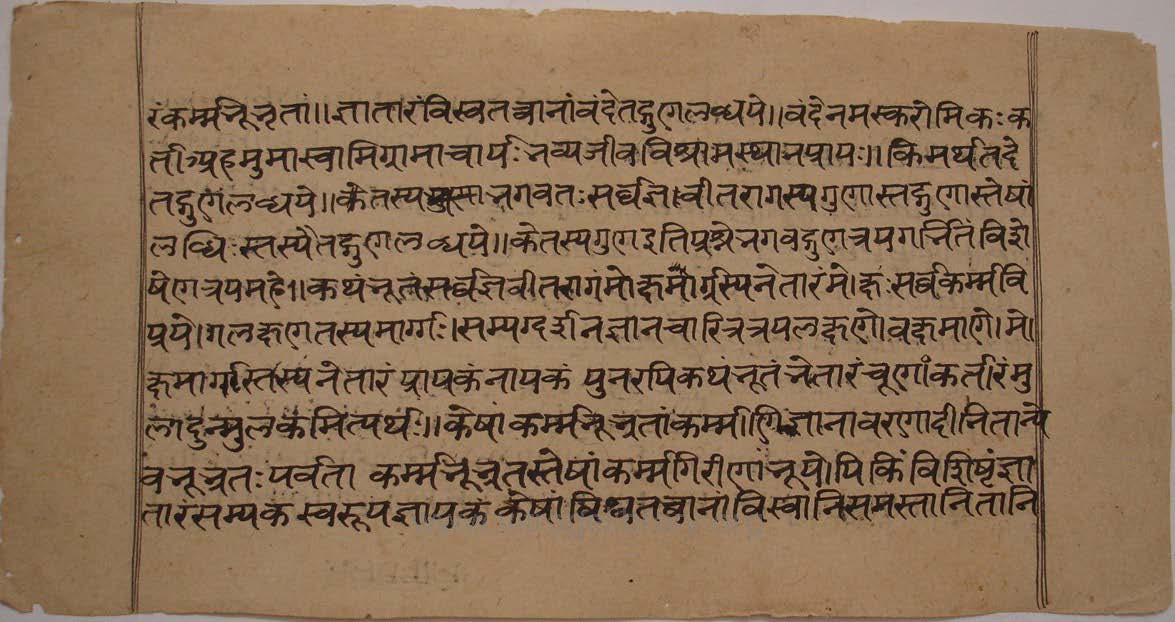 रंकर्म्मभूभृतां॥ ज्ञातारंविस्वतत्वानांवंदेतद्गुणलब्धये॥ वंदेनमस्करोमिकःक
र्ताग्रहमुमास्वामिग्रामाचार्यःभव्यजीवविश्रामस्थानप्रायः॥ किमर्थतदे
तद्गुणलब्धये॥ कैतस्य भगवतःसर्वज्ञ।वीतरागस्यगुणास्तद्गुणास्तेषां
लब्धिःस्तस्यैतद्गुणलब्धये॥ केतस्यगुणाइतिप्रश्नेभगवद्गुणत्रय विशे
षेणत्रयमहे॥ कथंभूतंसर्वज्ञवीतरागंमोक्षमार्गस्यनेतारंमोक्षःसर्वकर्म्मवि
प्रयोगलक्षणतस्यमार्गः।सम्यग्दर्शनज्ञानचारित्रत्रयलक्षणोवक्षमाणोमो
क्षमार्गस्तस्यनेतारंप्रापकंनापकं पुनरपिकथंभूतंभेतारंचूर्णांकर्तारंमु
लादुन्मुलकमित्यर्थः॥ केषांकर्म्मभूभृतांकर्म्माणिज्ञानावरणादीनितान्ये
वभूभृतःपर्वता कर्म्मभूभृतस्तेषांकर्म्मगिरीणांभूयोपिकिंविशिष्टंज्ञा
तारंसम्यकस्वरूपज्ञापकं केषांविश्वतत्वानांविस्वानिसमस्तानितानि